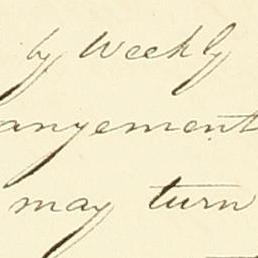 by Weekly
angement
may turn